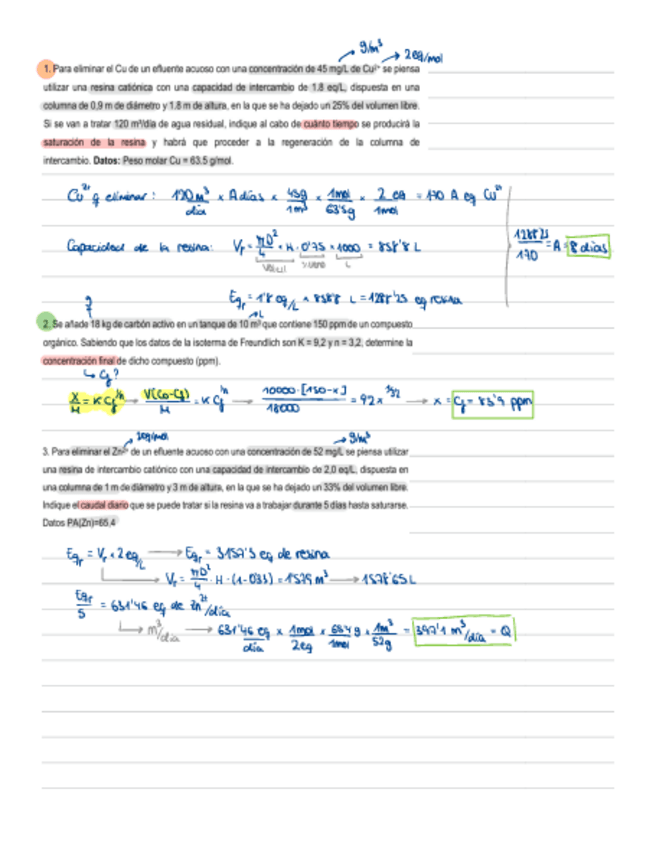 g/m³ 2eq/mol
1. Para eliminar el Cu de un efluente acuoso con una concentración de 45 mg/L de Cu²⁺ se piensa
utilizar una resina catiónica con una capacidad de intercambio de 1.8 eq/L, dispuesta en una
columna de 0,9 m de diámetro y 1.8 m de altura, en la que se ha dejado un 25% del volumen libre.
Si se van a tratar 120 m³/día de agua residual, indique al cabo de cuánto tiempo se producirá la
saturación de la resina y habrá que proceder a la regeneración de la columna de
intercambio. Datos: Peso molar Cu = 63.5 g/mol.
Cu²⁺ q eliminar: 120 m³/día × A días × 45g/1m³ × 1mol/63'5g × 2 eq/1mol = 170 A eq Cu²⁺
Capacidad de la resina: Vr = πD²/4 · H · 0'75 × 1000 = 858'8 L
1288'25/170 = A = 8 días
L
Eqr = 1'8 eq/L × 858'8 L = 1288'25 eq resina
g
L
2. Se añade 18 kg de carbón activo en un tanque de 10 m³ que contiene 150 ppm de un compuesto
orgánico. Sabiendo que los datos de la isoterma de Freundlich son K = 9,2 y n = 3,2, determine la
concentración final de dicho compuesto (ppm).
Cf?
X/M = K Cf^1/n → V(Co-Cf)/M = K Cf^1/n → 10000·[150-x]/18000 = 9'2x^1/3'2 → x = Cf = 85'9 ppm
2eq/mol g/m³
3. Para eliminar el Zn²⁺ de un efluente acuoso con una concentración de 52 mg/L se piensa utilizar
una resina de intercambio catiónico con una capacidad de intercambio de 2,0 eq/L, dispuesta en
una columna de 1 m de diámetro y 3 m de altura, en la que se ha dejado un 33% del volumen libre.
Indique el caudal diario que se puede tratar si la resina va a trabajar durante 5 días hasta saturarse.
Datos PA(Zn)=65,4
Eqr = Vr × 2 eq/L → Eqr = 3157'3 eq de resina
Vr = πD²/4 · H · (1-0'33) = 1'579 m³ → 1578'65 L
Eqr/5 = 631'46 eq de Zn²⁺/día
m³/día → 631'46 eq/día × 1mol/2eq × 65'4 g/1mol × 1m³/52g = 397'1 m³/día = Q